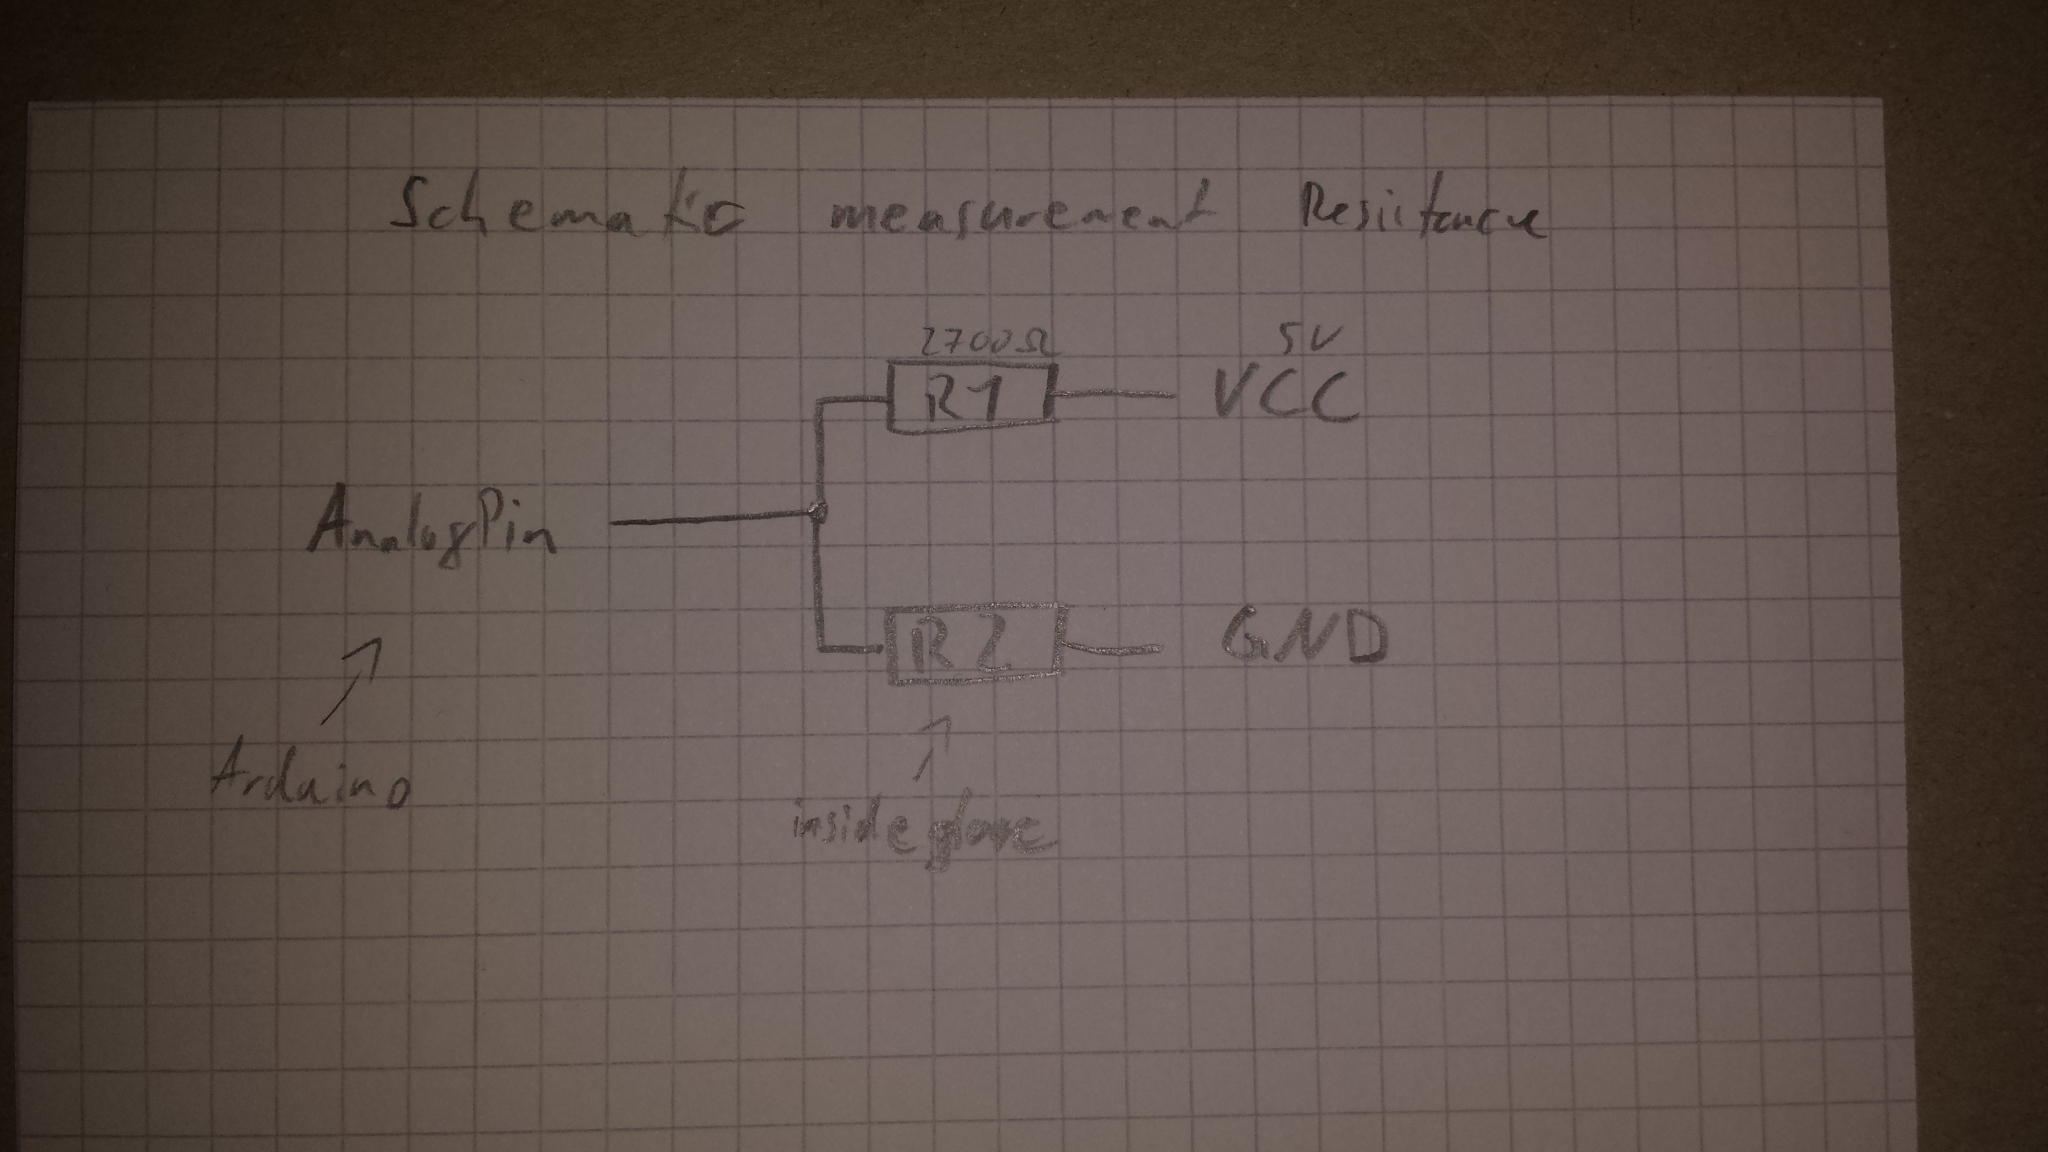 Schematic measurement Resistance
2700Ω
5V
R1
VCC
AnalogPin
R2
GND
Arduino
inside glove